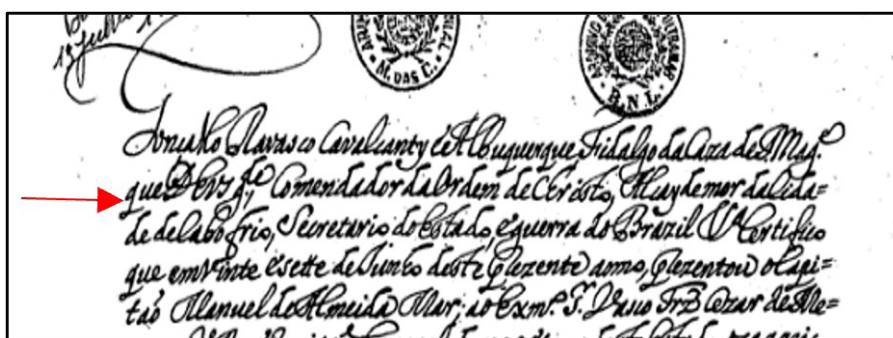 13 Julho
M. DAS C.
ARQUIVO ULTRAMAR
B. N. L.
Gonçallo Ravasco Cavalcanty eAlbuquerque Fidalgo da Caza de S. Mag.e
que Deos g.de Comendador da Ordem de Cristo, Alcaydemor da Cida=
de de Cabo frio, Secretario do Estado, eguerra do Brazil V.a Certifico
que em Vinte e sette de Junho deste prezente anno, prezentou o Capi=
tão Manuel de Almeida Mar; ao Exm.o S. Vasco Frz Cezar de Me=